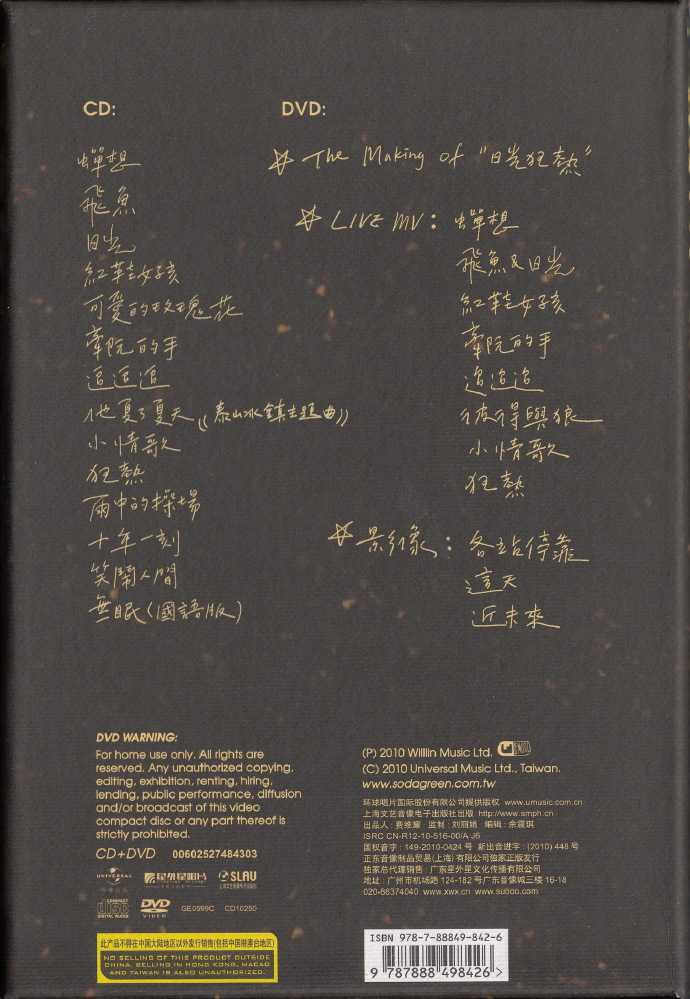 CD:
蟬想
飛魚
日光
紅鞋女孩
可愛的玫瑰花
牽阮的手
追追追
他夏了夏天《泰山冰鎮主題曲》
小情歌
狂熱
雨中的操場
十年一刻
笑鬧人間
無眠(國語版)
DVD:
☆ The Making of "日光狂熱"
☆ LIVE MV: 蟬想
飛魚&日光
紅鞋女孩
牽阮的手
追追追
彼得與狼
小情歌
狂熱
☆ 影像: 各站停靠
這天
近未來
DVD WARNING:
For home use only. All rights are
reserved. Any unauthorized copying,
editing, exhibition, renting, hiring,
lending, public performance, diffusion
and/or broadcast of this video
compact disc or any part thereof is
strictly prohibited.
CD+DVD 00602527484303
UNIVERSAL
星外星唱片
SLAV
COMPACT
disc
DIGITAL AUDIO
DVD
VIDEO
GE0599C CD10250
此产品不得在中国大陆地区以外发行销售(包括中国港澳台地区)
NO SELLING OF THIS PRODUCT OUTSIDE
CHINA. SELLING IN HONG KONG, MACAO
AND TAIWAN IS ALSO UNAUTHORIZED.
(P) 2010 Willlin Music Ltd.
(C) 2010 Universal Music Ltd., Taiwan.
www.sodagreen.com.tw
环球唱片国际股份有限公司提供版权 www.umusic.com.cn
上海文艺音像电子出版社出版 http://www.smph.cn
出品人: 费维耀 · 监制: 刘丽娟 · 编辑: 余震琪
ISRC CN-R12-10-516-00/A·J6
国权音字: 149-2010-0424 号 新出音进字: (2010) 448 号
正东音像制品贸易(上海)有限公司独家正版发行
独家总代理销售: 广东星外星文化传播有限公司
地址: 广州市机场路 124-182 号广东音像城三楼 16-18
020-86374040 www.xwx.cn www.suboo.com
ISBN 978-7-88849-842-6
9 787888 498426